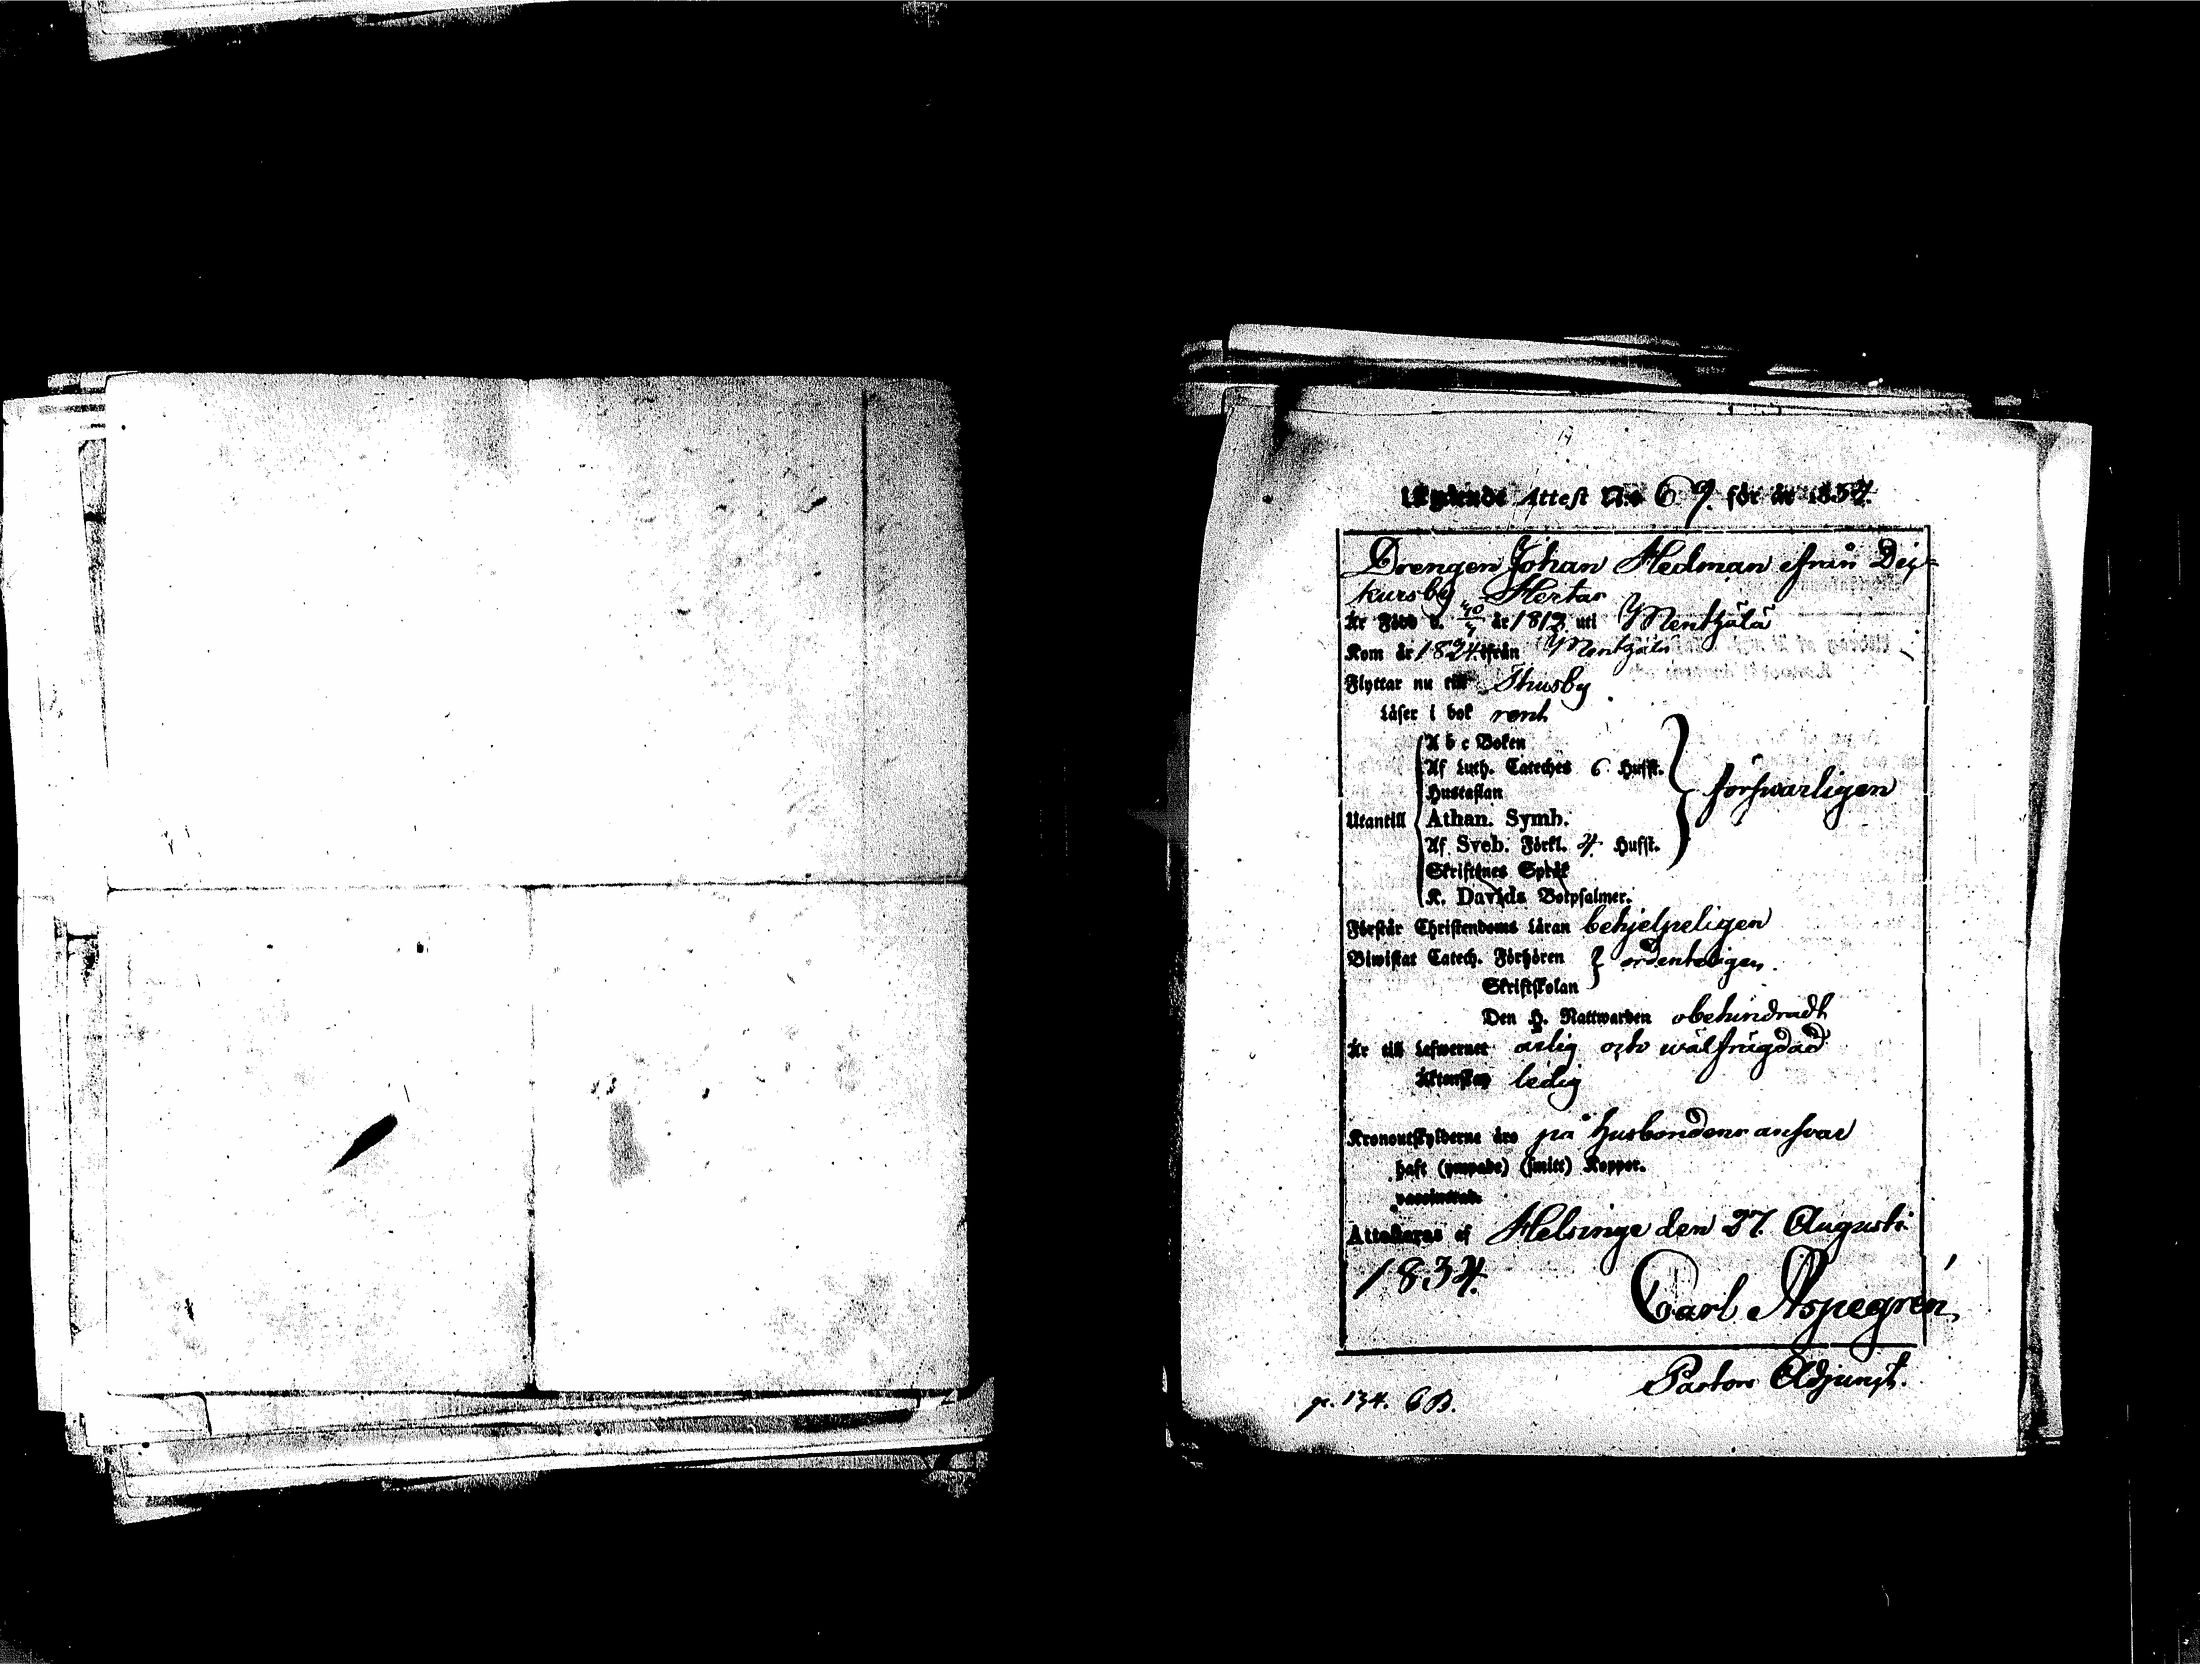 Attest N:o 69. för år 1834.
Drengen Johan Hedman ifrån Dix-
kursby Hertas
Är Född d. år 1813 uti Mentzälä
Kom år 1824 ifrån Mentzälä
Flyttar nu till Thusby
Läser i bok rent
A b c Boken
Af Luth. Cateches 6 Hufst.
Hustaflan
försvarligen
Utantill Athan. Symb.
Af Sveb. Förkl. 4 Hufst.
Skriftenes Språk
K. Davids Botpsalmer.
Förstår Christendoms Läran behjelpeligen
Biwistat Catech. Förhören ordenteligen.
Skriftskolan
Den H. Nattwarden obehindradt
Är till Lefwernet ärlig och wälfrägdad
Äktenskap ledig
Kronoutskylderne äro på Husbondens ansvar
haft (ympade) (smitt) Koppor.
vaccinerad.
Attesteras af Helsinge den 27. Augusti
1834.
Carl Aspegrén,
Pastors Adjunct.
p. 134. 6 B.